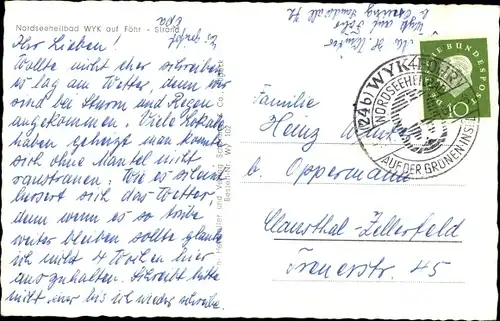 Nordseeheilbad WYK auf Föhr - Strand
Ihr Lieben!
Wollte nicht eher schreiben
es lag am Wetter, denn wir
sind bei Sturm und Regen
angekommen. Viele Lokale
haben geheizt man konnte
sich ohne Mantel nicht
raustrauen. Wie es scheint
bessert sich das Wetter
denn wenn es so trübe
weiter bleiben sollte glaube
ich nicht 4 Wochen hier
auszuhalten. Schreibt bitte
nicht eher bis ich wieder schreibe.
Opa
Wyk auf Föhr
DEUTSCHE BUNDESPOST
10
(24b) WYK (FÖHR)
NORDSEEHEILBAD
AUF DER GRÜNEN INSEL
Familie
Heinz
b. Oppermann
Clausthal-Zellerfeld
45